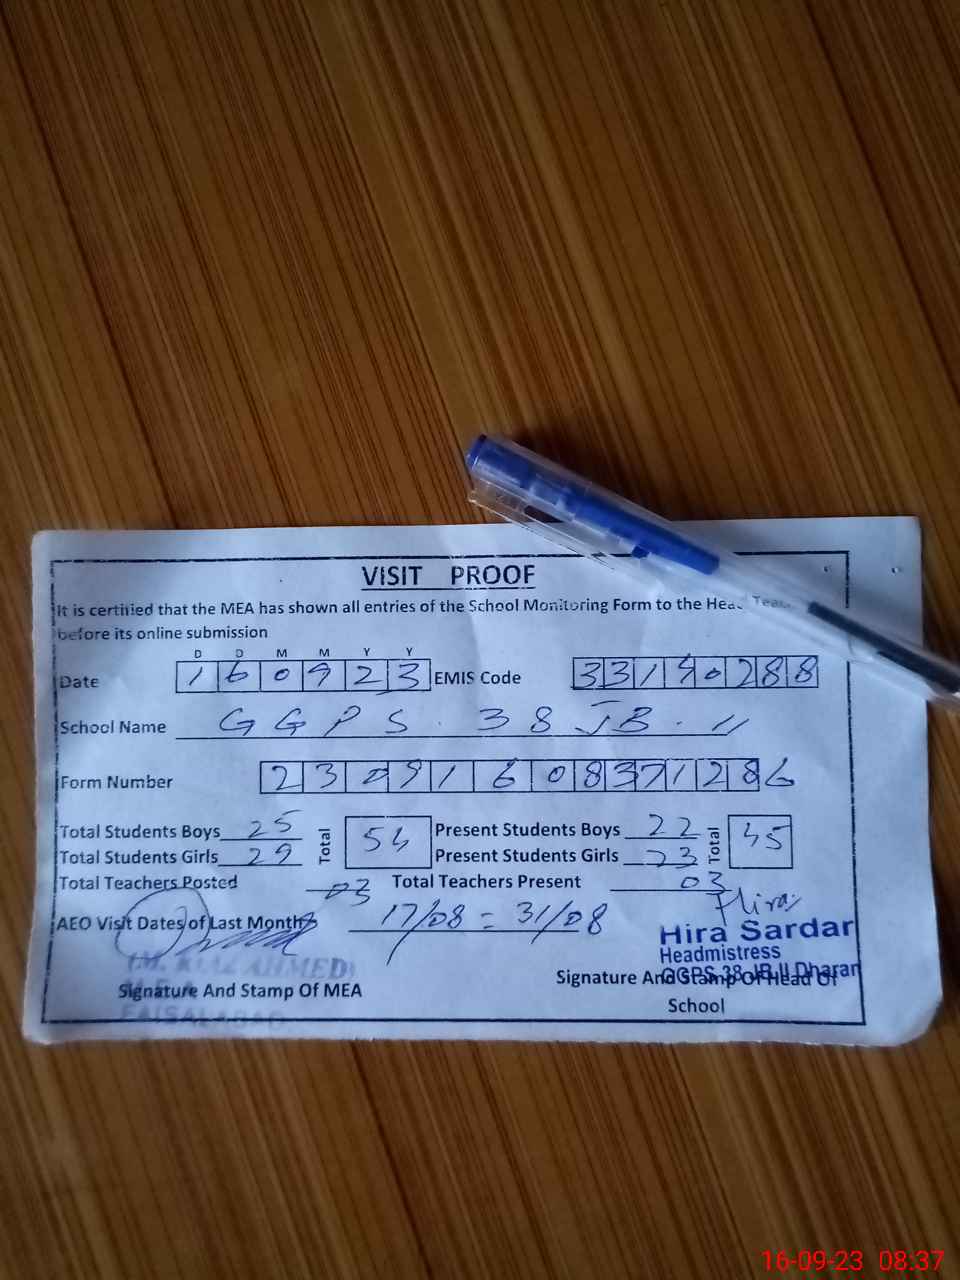 VISIT PROOF
It is certified that the MEA has shown all entries of the School Monitoring Form to the Head
before its online submission
D D M M Y Y
Date 160923 EMIS Code 33140288
School Name GGPS. 38 JB. II
Form Number 23091608371286
Total Students Boys 25 Total 54 Present Students Boys 22 Total 45
Total Students Girls 29 Present Students Girls 23
Total Teachers Posted 03 Total Teachers Present 03
Hira
AEO Visit Dates of Last Month 17/08 = 31/08
Hira Sardar
Headmistress
AHMED)
GGPS 38 JB II Dharan
Signature And Stamp Of MEA Signature And Stamp Of Head Of
School
FAISALABAD
16-09-23 08:37